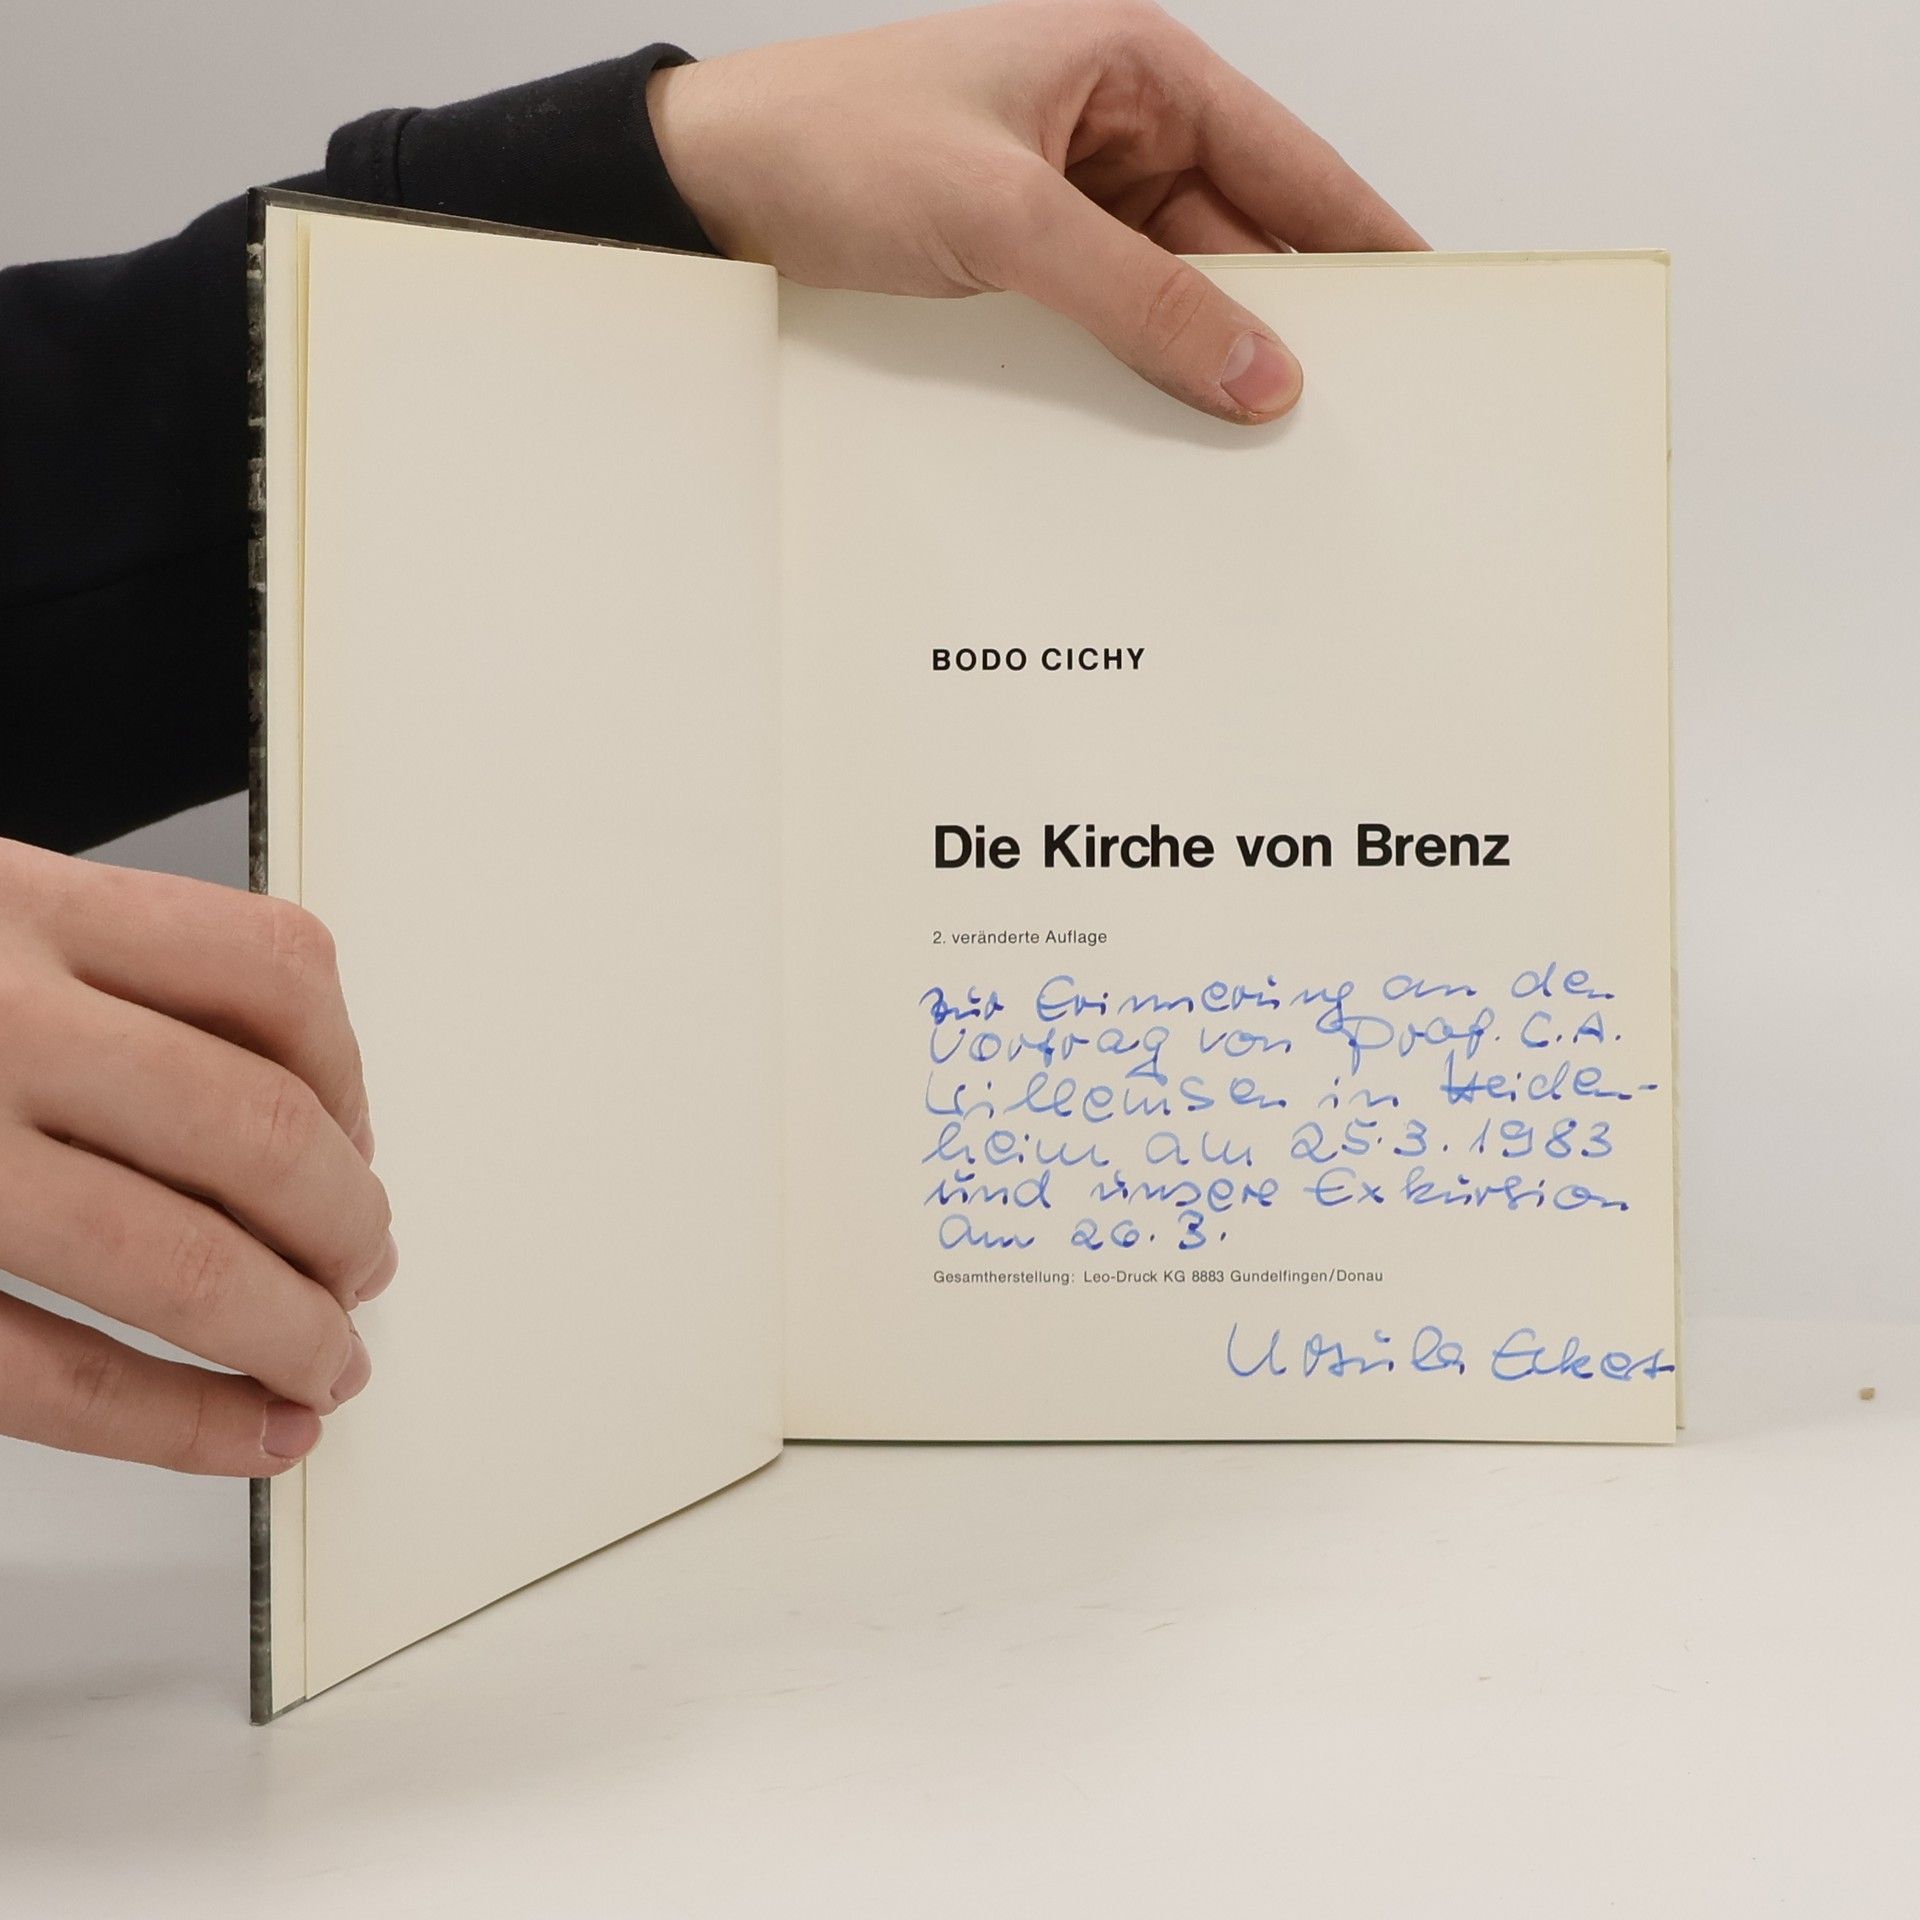 BODO CICHY
Die Kirche von Brenz
2. veränderte Auflage
zur Erinnerung an den
Vortrag von Prof. C.A.
Willemsen in Heiden-
heim am 25.3.1983
und unsere Exkursion
am 26.3.
Gesamtherstellung: Leo-Druck KG 8883 Gundelfingen/Donau
Ursula Eckert